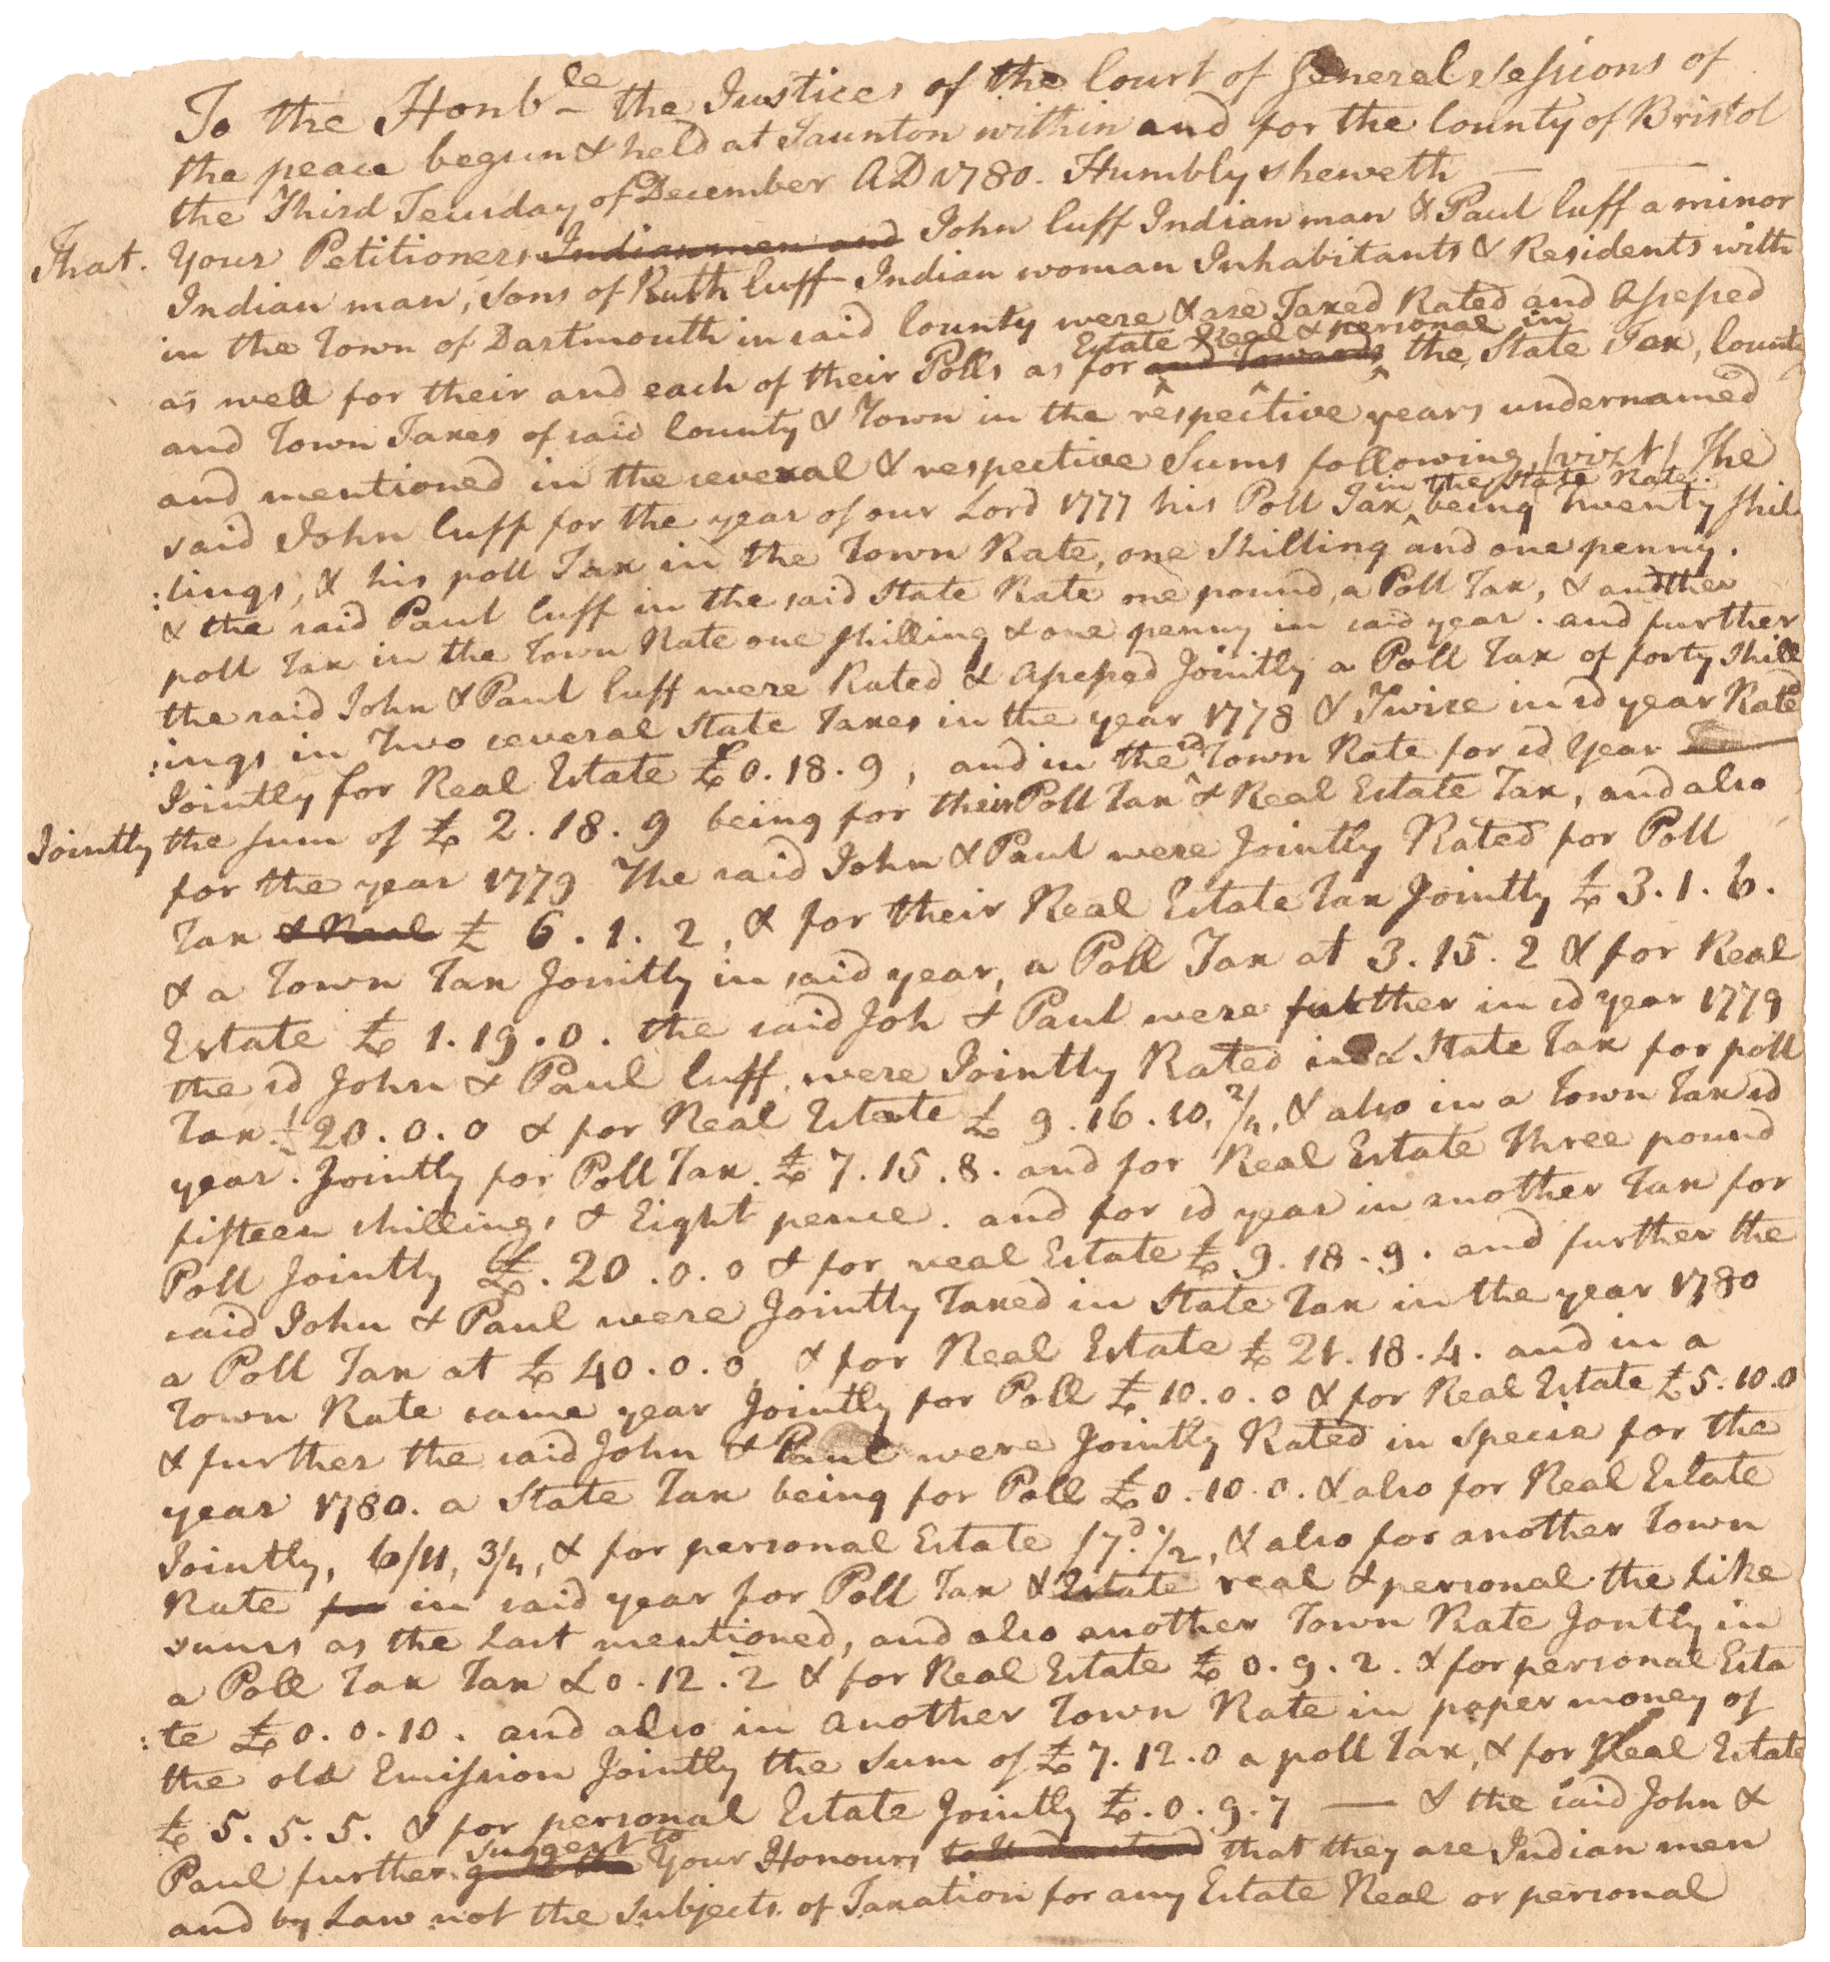 To the Honble the Justices of the Court of General Sessions of
the peace begun & held at Taunton within and for the County of Bristol
the Third Teusday of December AD 1780. Humbly sheweth —
That. Your Petitioners Indian men and John Cuff Indian man & Paul Cuff a minor
Indian man, sons of Ruth Cuff Indian woman Inhabitants & Residents with
in the Town of Dartmouth in said County were & are Taxed Rated and Assessed
Estate Real & personal in
as well for their and each of their Polls as for and towards the State Tax, County
and Town Taxes of said County & Town in the respective years undernamed
and mentioned in the several & respective Sums following /vizt/ The
in the State Rate.
said John Cuff for the year of our Lord 1777 his Poll Tax being Twenty shil
:lings, & his poll Tax in the Town Rate, one Shilling and one penny.
& the said Paul Cuff in the said State Rate one pound, a Poll Tax, & another
poll Tax in the Town Rate one shilling & one penny in said year. and further
the said John & Paul Cuff were Rated & Assessed Jointly a Poll Tax of forty shill
:ings in Two several State Taxes in the year 1778 & Twice in sd year Rated
Jointly for Real Estate £0.18.9, and in the sd Town Rate for sd Year
Jointly the sum of £ 2.18.9 being for their Poll Tax & Real Estate Tax, and also
for the year 1779 The said John & Paul were Jointly Rated for Poll
Tax & Real £ 6.1.2, & for their Real Estate Tax Jointly £ 3.1.6.
& a Town Tax Jointly in said year, a Poll Tax at 3.15.2 & for Real
Estate £ 1.19.0. the said Joh & Paul were further in sd year 1779
the sd John & Paul Cuff, were Jointly Rated in a State Tax for poll
Tax £20.0.0 & for Real Estate £ 9.16.10.2/4, & also in a Town Tax sd
year. Jointly for Poll Tax. £ 7.15.8. and for Real Estate Three pound
fifteen shillings & Eight pence. and for sd year in another Tax for
Poll Jointly £.20.0.0 & for real Estate £ 9.18.9. and further the
said John & Paul were Jointly Taxed in State Tax in the year 1780
a Poll Tax at £ 40.0.0, & for Real Estate £ 21.18.4. and in a
Town Rate same year Jointly for Poll £ 10.0.0 & for Real Estate £5.10.0
& further the said John & Paul were Jointly Rated in specie for the
year 1780. a State Tax being for Poll £0.10.0. & also for Real Estate
Jointly, 6/11, 3/4, & for personal Estate /7.d 1/2, & also for another Town
Rate for in said year for Poll Tax & Estate real & personal the Like
sums as the Last mentioned, and also another Town Rate Jontly in
a Poll Tax Tax £0.12.2 & for Real Estate £ 0.9.2. & for personal Esta
:te £0.0.10. and also in another Town Rate in paper money of
the old Emission Jointly the Sum of £ 7.12.0 a poll Tax, & for Real Estate
£ 5.5.5. & for personal Estate Jointly £.0.9.7 — & the said John &
suggest to
Paul further Your Honours that they are Indian men
and by Law not the Subjects of Taxation for any Estate Real or personal